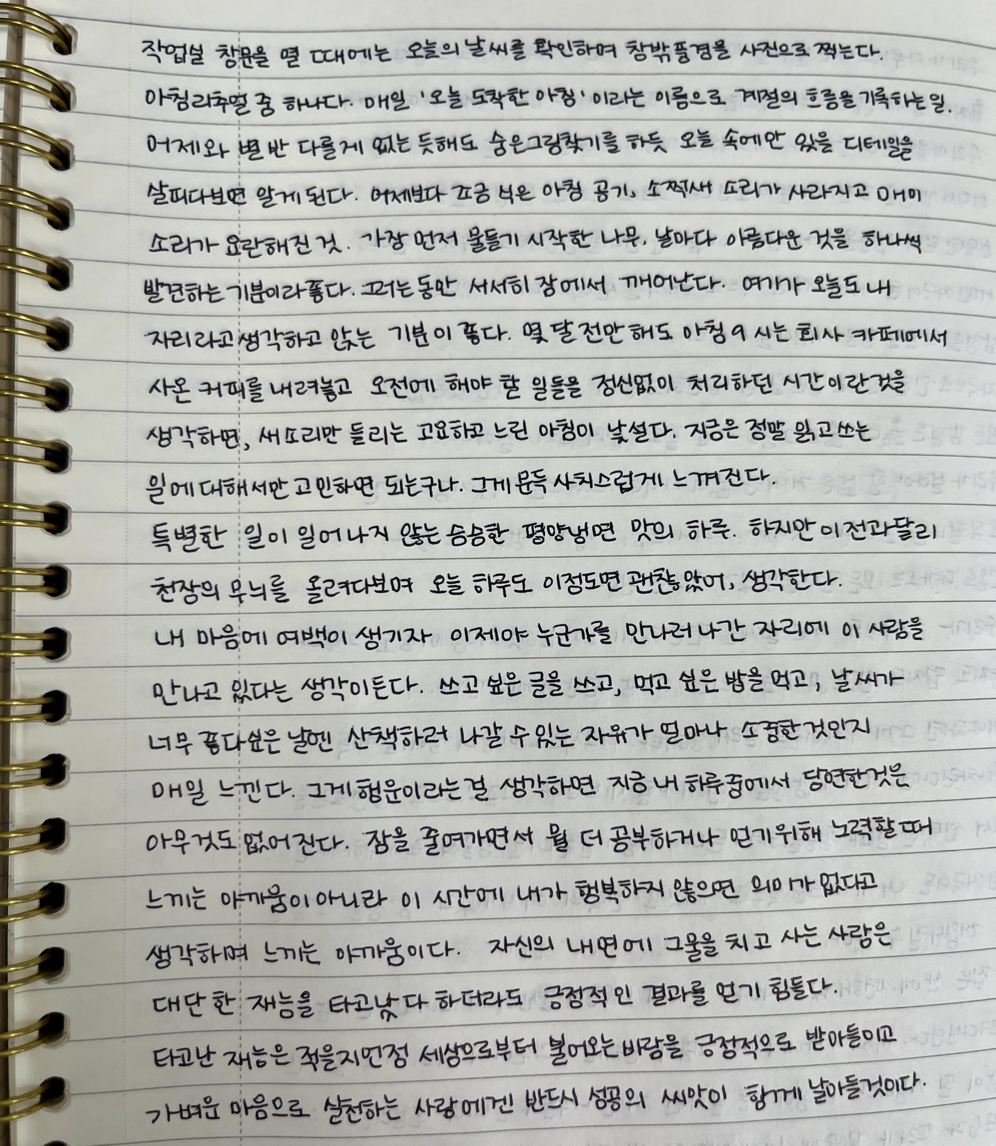 작업실 창문을 열 때에는 오늘의 날씨를 확인하며 창밖풍경을 사진으로 찍는다.
아침리추얼 중 하나다. 매일 '오늘 도착한 아침'이라는 이름으로 계절의 흐름을 기록하는 일.
어제와 별반 다를게 없는 듯해도 숨은그림찾기를 하듯 오늘 속에만 있을 디테일을
살피다보면 알게 된다. 어제보다 조금 식은 아침 공기, 소쩍새 소리가 사라지고 매미
소리가 요란해진 것. 가장 먼저 물들기 시작한 나무. 날마다 아름다운 것을 하나씩
발견하는 기분이라 좋다. 그러는 동안 서서히 잠에서 깨어난다. 여기가 오늘도 내
자리라고 생각하고 앉는 기분이 좋다. 몇 달 전만 해도 아침 9시는 회사 카페에서
사온 커피를 내려놓고 오전에 해야 할 일들을 정신없이 처리하던 시간이란것을
생각하면, 새소리만 들리는 고요하고 느린 아침이 낯설다. 지금은 정말 읽고 쓰는
일에 대해서만 고민하면 되는구나. 그게 문득 사치스럽게 느껴진다.
특별한 일이 일어나지 않는 슴슴한 평양냉면 맛의 하루. 하지만 이전과 달리
천장의 무늬를 올려다보며 오늘 하루도 이정도면 괜찮았어, 생각한다.
내 마음에 여백이 생기자 이제야 누군가를 만나러 나간 자리에 이 사람을
만나고 있다는 생각이 든다. 쓰고 싶은 글을 쓰고, 먹고 싶은 밥을 먹고, 날씨가
너무 좋다싶은 날엔 산책하러 나갈 수 있는 자유가 얼마나 소중한것인지
매일 느낀다. 그게 행운이라는 걸 생각하면 지금 내 하루중에서 당연한것은
아무것도 없어진다. 잠을 줄여가면서 뭘 더 공부하거나 얻기위해 노력할때
느끼는 아까움이 아니라 이 시간에 내가 행복하지 않으면 의미가 없다고
생각하며 느끼는 아까움이다. 자신의 내면에 그물을 치고 사는 사람은
대단한 재능을 타고났다 하더라도 긍정적인 결과를 얻기 힘들다.
타고난 재능은 적을지언정 세상으로부터 불어오는 바람을 긍정적으로 받아들이고
가벼운 마음으로 실천하는 사람에겐 반드시 성공의 씨앗이 함께 날아들것이다.